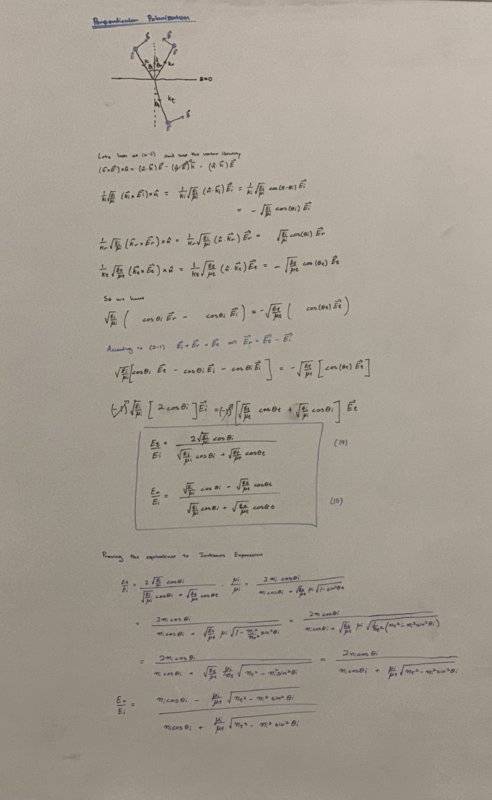 Perpendicular Polarization
z=0
Lets look at (2-5) and use the vector identity
(k⃗×E⃗)×n̂ = (n̂·k⃗)E⃗ - (n̂·E⃗)k⃗ = (n̂·k⃗)E⃗
1/ki √(εi/μi) (k⃗i×E⃗i)×n̂ = 1/ki √(εi/μi) (n̂·k⃗i)E⃗i = 1/ki √(εi/μi) cos(π-θi) E⃗i
= -√(εi/μi) cos(θi) E⃗i
1/kr √(εi/μi) (k⃗r×E⃗r)×n̂ = 1/kr √(εi/μi) (n̂·k⃗r)E⃗r = √(εi/μi) cos(θi) E⃗r
1/kt √(εt/μt) (k⃗t×E⃗t)×n̂ = 1/kt √(εt/μt) (n̂·k⃗t)E⃗t = -√(εt/μt) cos(θt) E⃗t
So we have
√(εi/μi) ( cosθi E⃗r - cosθi E⃗i ) = -√(εt/μt) ( cos(θt) E⃗t )
According to (2-1) E⃗i + E⃗r = E⃗t ⇒ E⃗r = E⃗t - E⃗i
√(εi/μi) [cosθi E⃗t - cosθi E⃗i - cosθi E⃗i] = -√(εt/μt) [cos(θt) E⃗t]
√(εi/μi) [2cosθi] E⃗i = [√(εt/μt) cosθt + √(εi/μi) cosθi] E⃗t
Et/Ei = 2√(εi/μi) cosθi / (√(εi/μi) cosθi + √(εt/μt) cosθt) (14)
Er/Ei = (√(εi/μi) cosθi - √(εt/μt) cosθt) / (√(εi/μi) cosθi + √(εt/μt) cosθt) (15)
Proving the equivalence to Expression
Et/Ei = 2√(εi/μi) cosθi / (√(εi/μi) cosθi + √(εt/μt) cosθt) · μi/μi = 2ni cosθi / (ni cosθi + √(εt/μt) μi √(1-sin²θt))
= 2ni cosθi / (ni cosθi + √(εt/μt) μi √(1-ni²/nt² sin²θi)) = 2ni cosθi / (ni cosθi + √(εt/μt) μi √(1/nt² (nt²-ni² sin²θi)))
= 2ni cosθi / (ni cosθi + √(εt/μt) μi/nt √(nt²-ni² sin²θi)) = 2ni cosθi / (ni cosθi + μi/μt √(nt²-ni² sin²θi))
Er/Ei = (ni cosθi - μi/μt √(nt²-ni² sin²θi)) / (ni cosθi + μi/μt √(nt²-ni² sin²θi))